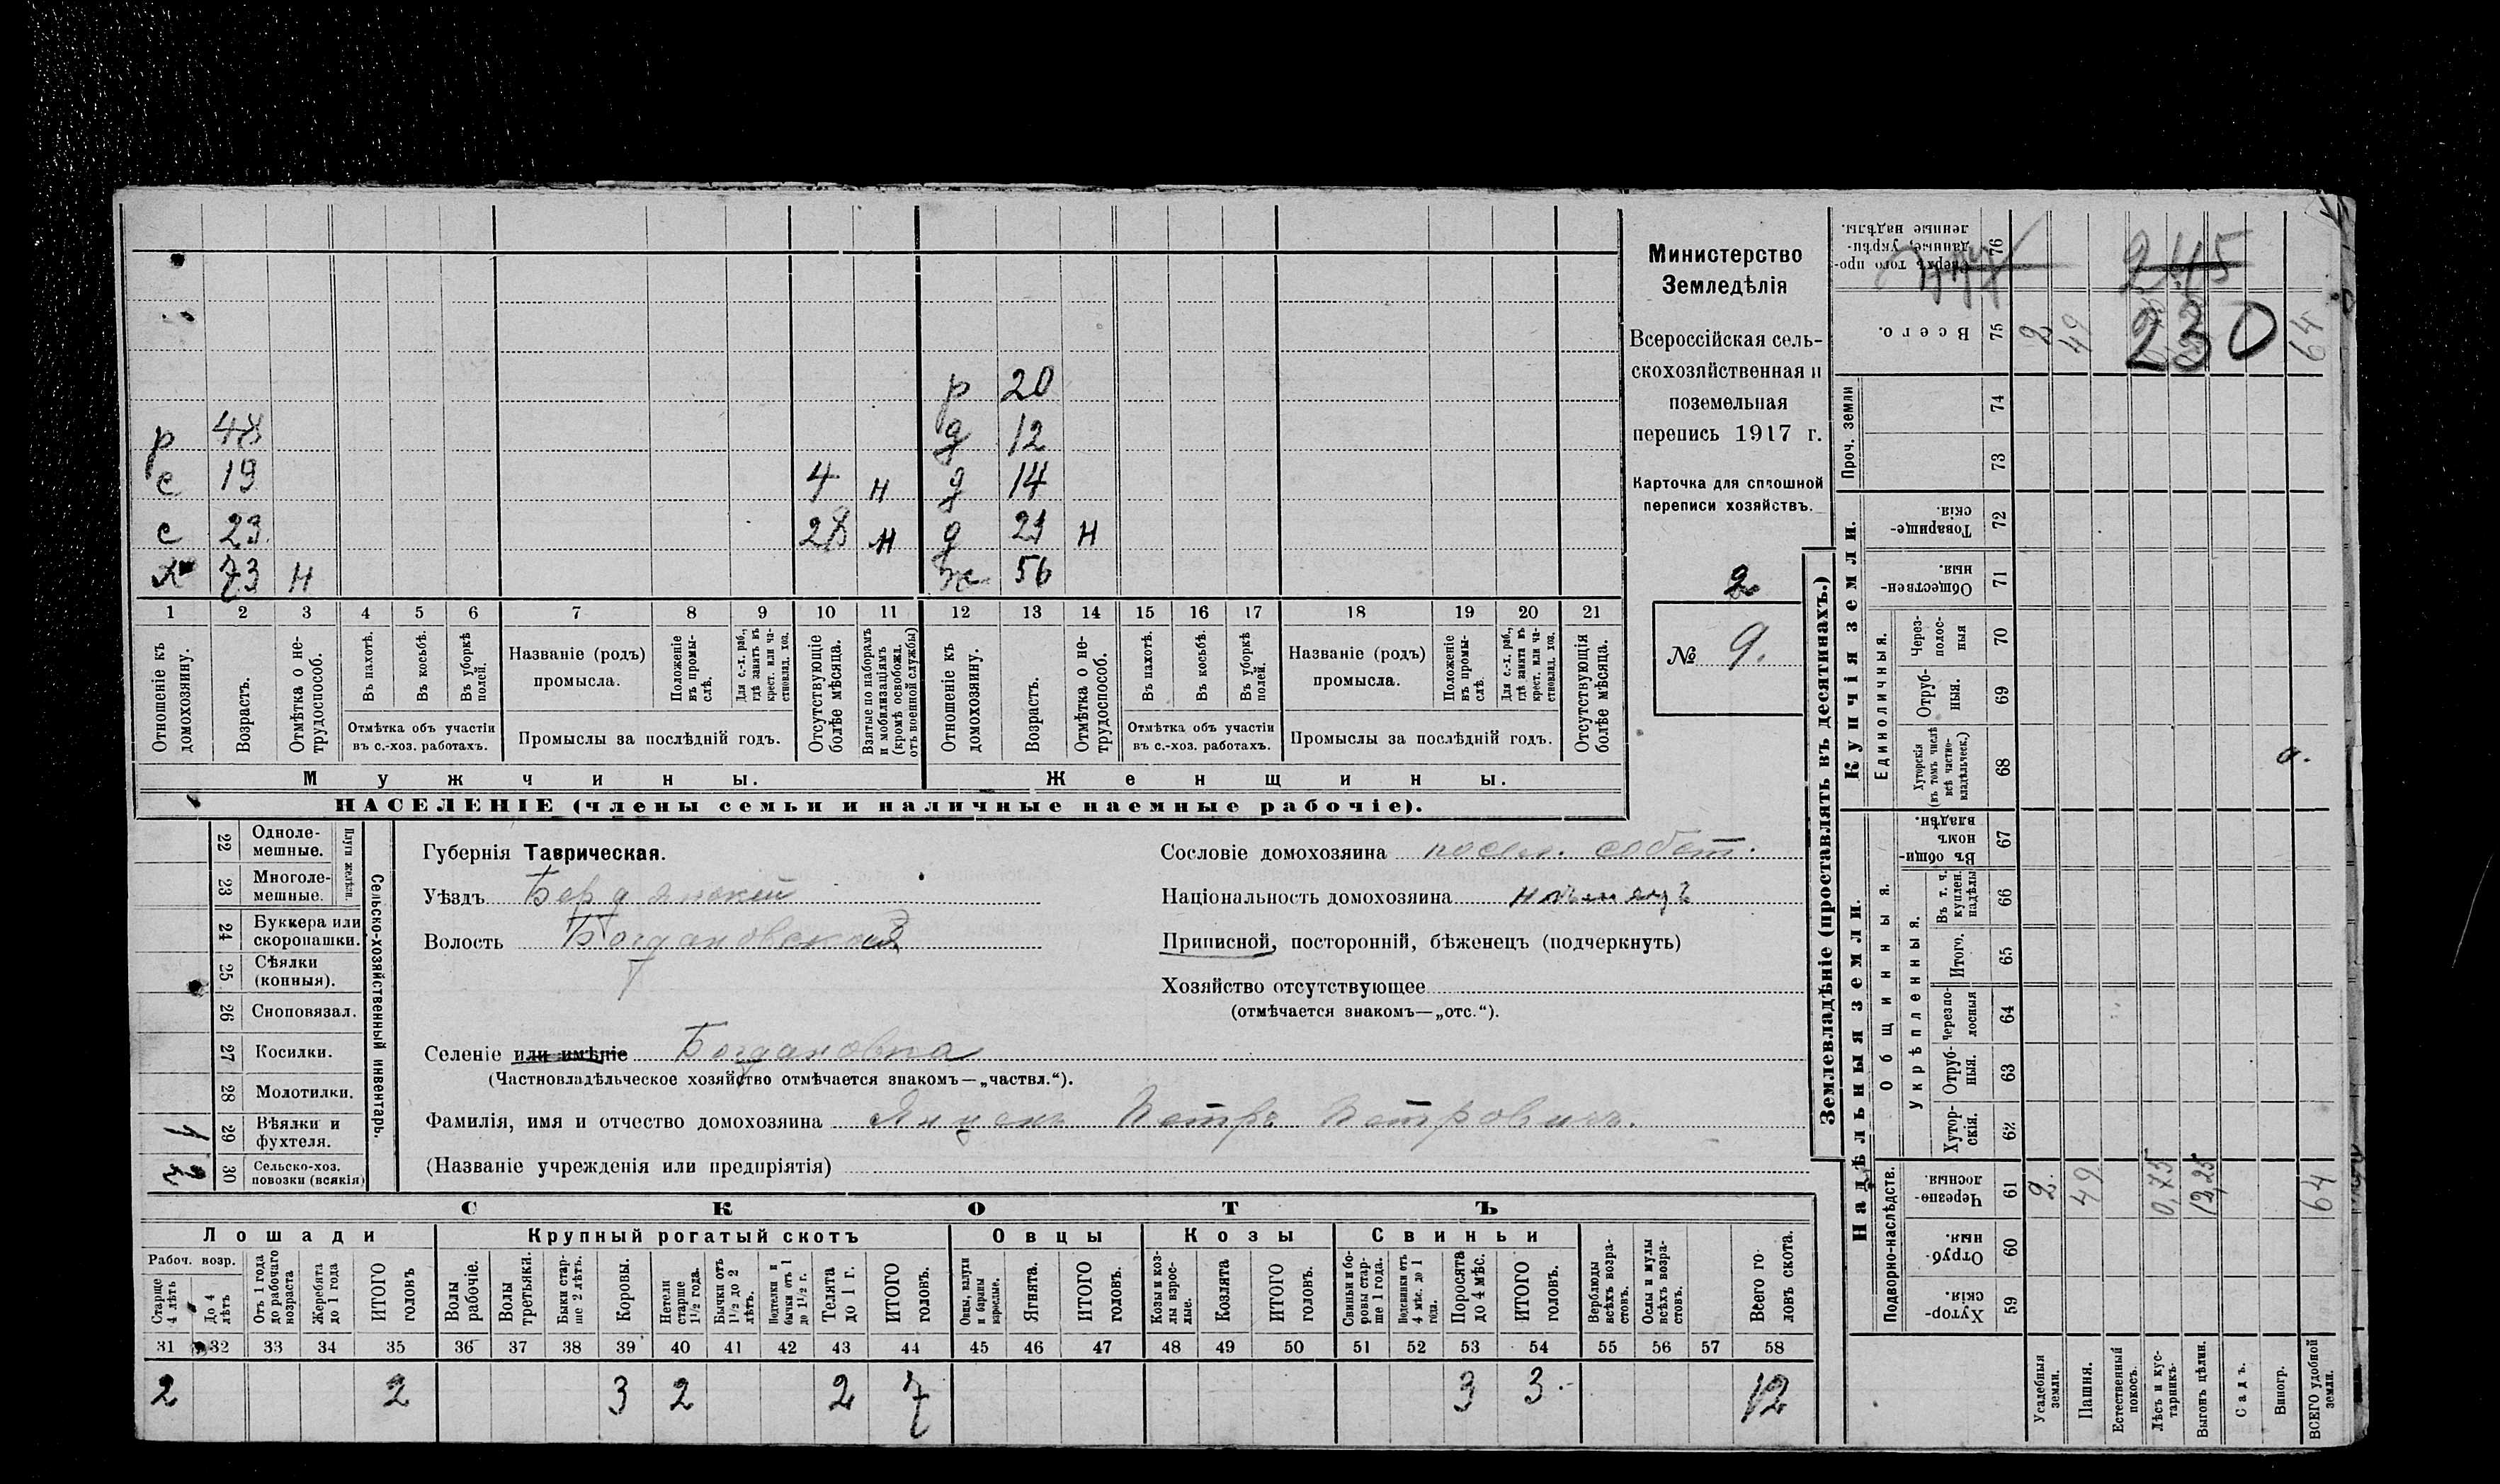 Министерство
Земледѣлія
Всероссійская сель-
скохозяйственная и
поземельная
перепись 1917 г.
Карточка для сплошной
переписи хозяйствъ.
2
№ 9.
р 20
р 48 д 12
с 19 4 н д 14
с 23 28 н д 21 н
х 73 н ж 56
1 2 3 4 5 6 7 8 9 10 11 12 13 14 15 16 17 18 19 20 21
Отношеніе къ домохозяину.
Возрастъ.
Отмѣтка о не-трудоспособ.
Въ пахотѣ.
Въ косьбѣ.
Въ уборкѣ полей.
Отмѣтка объ участіи
въ с.-хоз. работахъ.
Названіе (родъ)
промысла.
Положеніе въ промы-слѣ.
Для с.-х. раб., гдѣ занятъ въ крест. или ча-ствовлад. хоз.
Промыслы за послѣдній годъ.
Отсутствующіе болѣе мѣсяца.
Взятые по наборамъ и мобилизаціямъ (кромѣ освобожд. отъ военной службы)
Отношеніе къ домохозяину.
Возрастъ.
Отмѣтка о не-трудоспособ.
Въ пахотѣ.
Въ косьбѣ.
Въ уборкѣ полей.
Отмѣтка объ участіи
въ с.-хоз. работахъ.
Названіе (родъ)
промысла.
Положеніе въ промы-слѣ.
Для с.-х. раб., гдѣ занята въ крест. или ча-ствовлад. хоз.
Промыслы за послѣдній годъ.
Отсутствующія болѣе мѣсяца.
Мужчины. Женщины.
НАСЕЛЕНІЕ (члены семьи и наличные наемные рабочіе).
Сельско-хозяйственный инвентарь.
Плуги желѣзн.
22 Одноле-мешные.
23 Многоле-мешные.
24 Буккера или скоропашки.
25 Сѣялки (конныя).
26 Сноповязал.
27 Косилки.
28 Молотилки.
1 29 Вѣялки и фухтеля.
30 Сельско-хоз. повозки (всякія)
Губернія Таврическая.
Уѣздъ Бердянскій
Волость Богдановская
Селеніе или имѣніе Богдановка
(Частновладѣльческое хозяйство отмѣчается знакомъ—„частвл.“).
Фамилія, имя и отчество домохозяина Янценъ Петръ Петровичъ.
(Названіе учрежденія или предпріятія)
Сословіе домохозяина посел. собст.
Національность домохозяина нѣмецъ
Приписной, посторонній, бѣженецъ (подчеркнуть)
Хозяйство отсутствующее
(отмѣчается знакомъ—„отс.“).
СКОТЪ
Лошади Крупный рогатый скотъ Овцы Козы Свиньи
Рабоч. возр.
Старше 4 лѣтъ
До 4 лѣтъ
Отъ 1 года до рабочаго возраста
Жеребята до 1 года
ИТОГО головъ
Волы рабочіе.
Волы третьяки.
Быки стар-ше 2 лѣтъ.
Коровы.
Нетели старше 1½ года.
Бычки отъ 1½ до 2 лѣтъ.
Подтелки и бычки отъ 1 до 1½ г.
Телята до 1 г.
ИТОГО головъ.
Овцы, валухи и бараны взрослые.
Ягнята.
ИТОГО головъ.
Козы и коз-лы взрос-лые.
Козлята
ИТОГО головъ.
Свиньи и бо-ровы стар-ше 1 года.
Подсвинки отъ 4 мѣс. до 1 года.
Поросята до 4 мѣс.
ИТОГО головъ.
Верблюды всѣхъ возра-стовъ.
Ослы и мулы всѣхъ возра-стовъ.
Всего го-ловъ скота.
31 32 33 34 35 36 37 38 39 40 41 42 43 44 45 46 47 48 49 50 51 52 53 54 55 56 57 58
2 2 3 2 2 7 3 3 12
Землевладѣніе (проставлять въ десятинахъ.)
Надѣльныя земли. Купчія земли. Проч. земли
Подворно-наслѣдств. Общинныя. Единоличныя.
Укрѣпленныя.
Сверхъ того про-данные, укрѣп-ленные надѣлы. 76 245
Всего. 75 2 49 230 64
74
73
Товарище-скія. 72
Обществен-ныя. 71
Через-полос-ныя 70
Отруб-ныя. 69
Хуторскія (въ томъ числѣ всѣ частно-владѣльческ.) 68
Въ общи-номъ владѣн. 67
Въ т. ч. куплен. надѣлы 66
Итого. 65
Черезпо-лосныя 64
Отруб-ныя. 63
Хутор-скія. 62
Черезпо-лосныя. 61 2. 49 0,75 12,25 64
Отруб-ныя. 60
Хутор-скія. 59
Усадебная земля.
Пашня.
Естественный покосъ.
Лѣсъ и кус-тарникъ.
Выгонъ цѣлин.
Садъ.
Виногр.
ВСЕГО удобной земли.